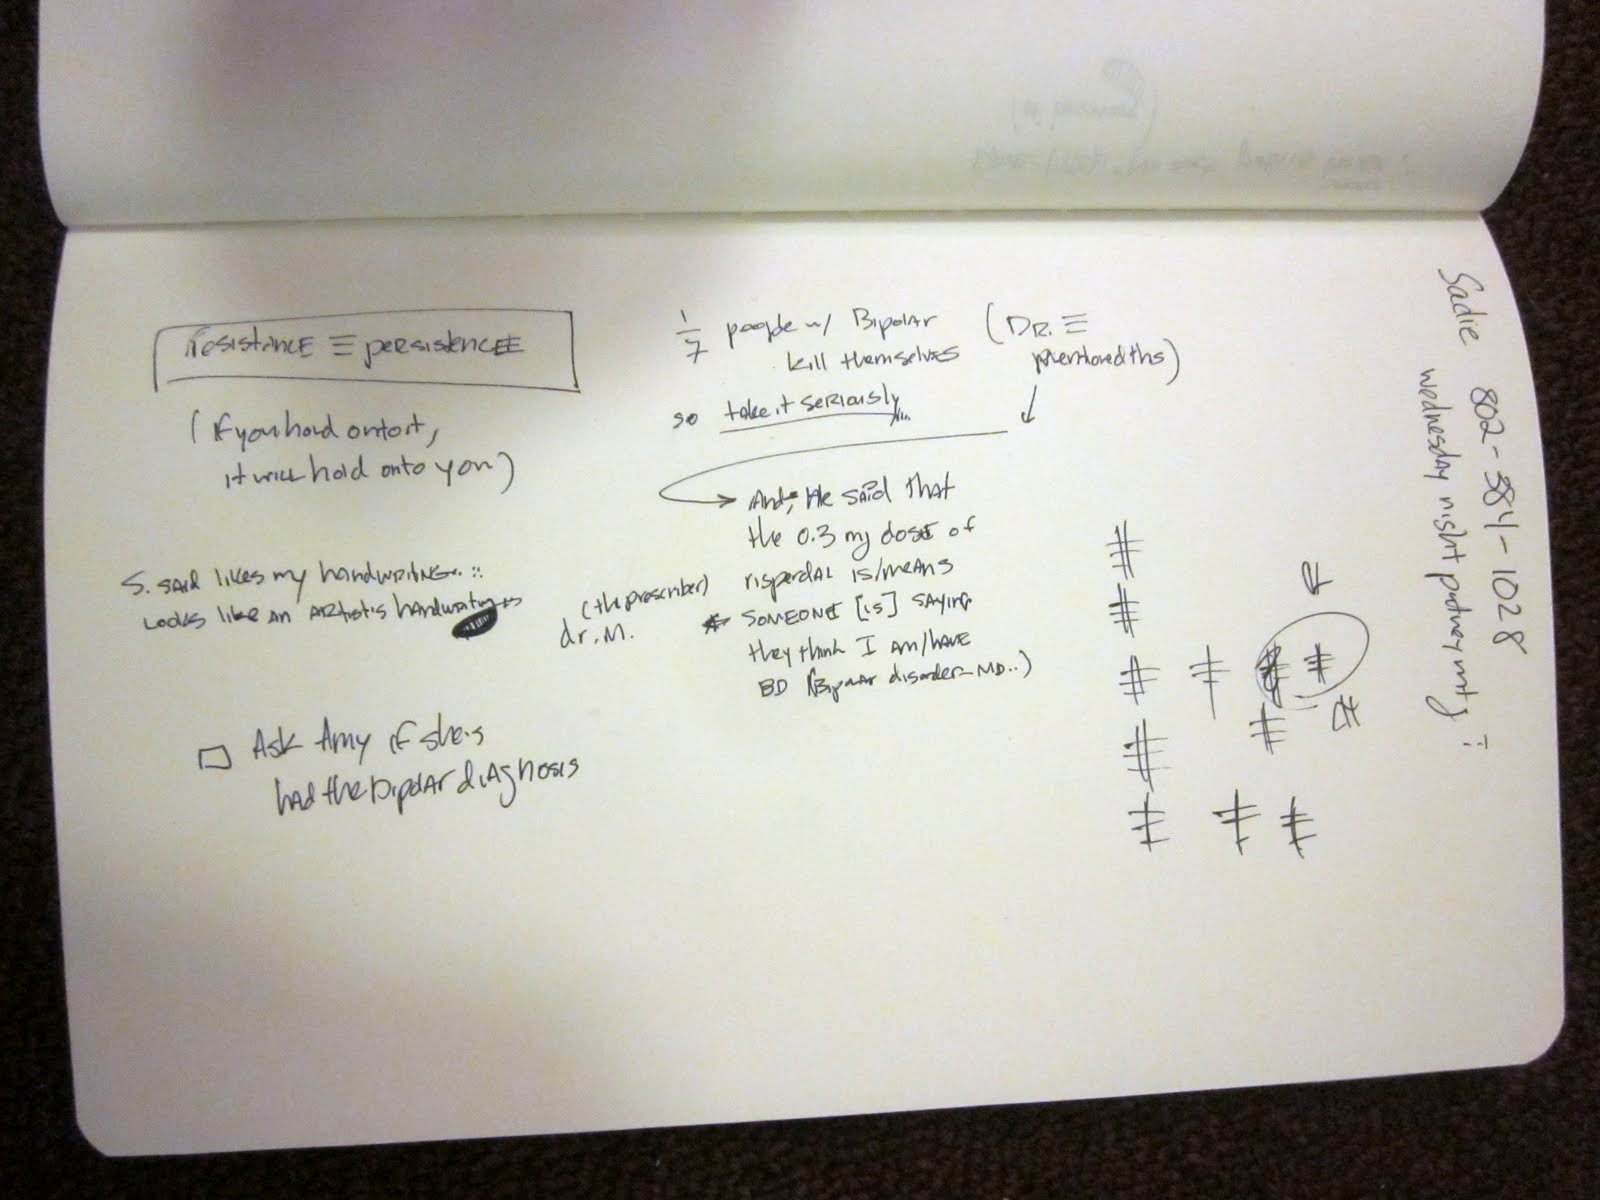 Resistance ≡ persistence
(If you hold onto it,
it will hold onto you)
S. said likes my handwriting..::
looks like an artist's handwriting
□ Ask Amy if she's
had the bipolar diagnosis
1/7 people w/ Bipolar
kill themselves
(DR. ≡
mentioned ths)
so take it seriously...
And; He said that
the 0.3 mg dose of
risperdal is/means
* someone [is] saying
they think I am/have
BD (Bipolar disorder - MD..)
(the prescriber)
dr. M.
Sadie 802-384-1028
wednesday night putney mtg